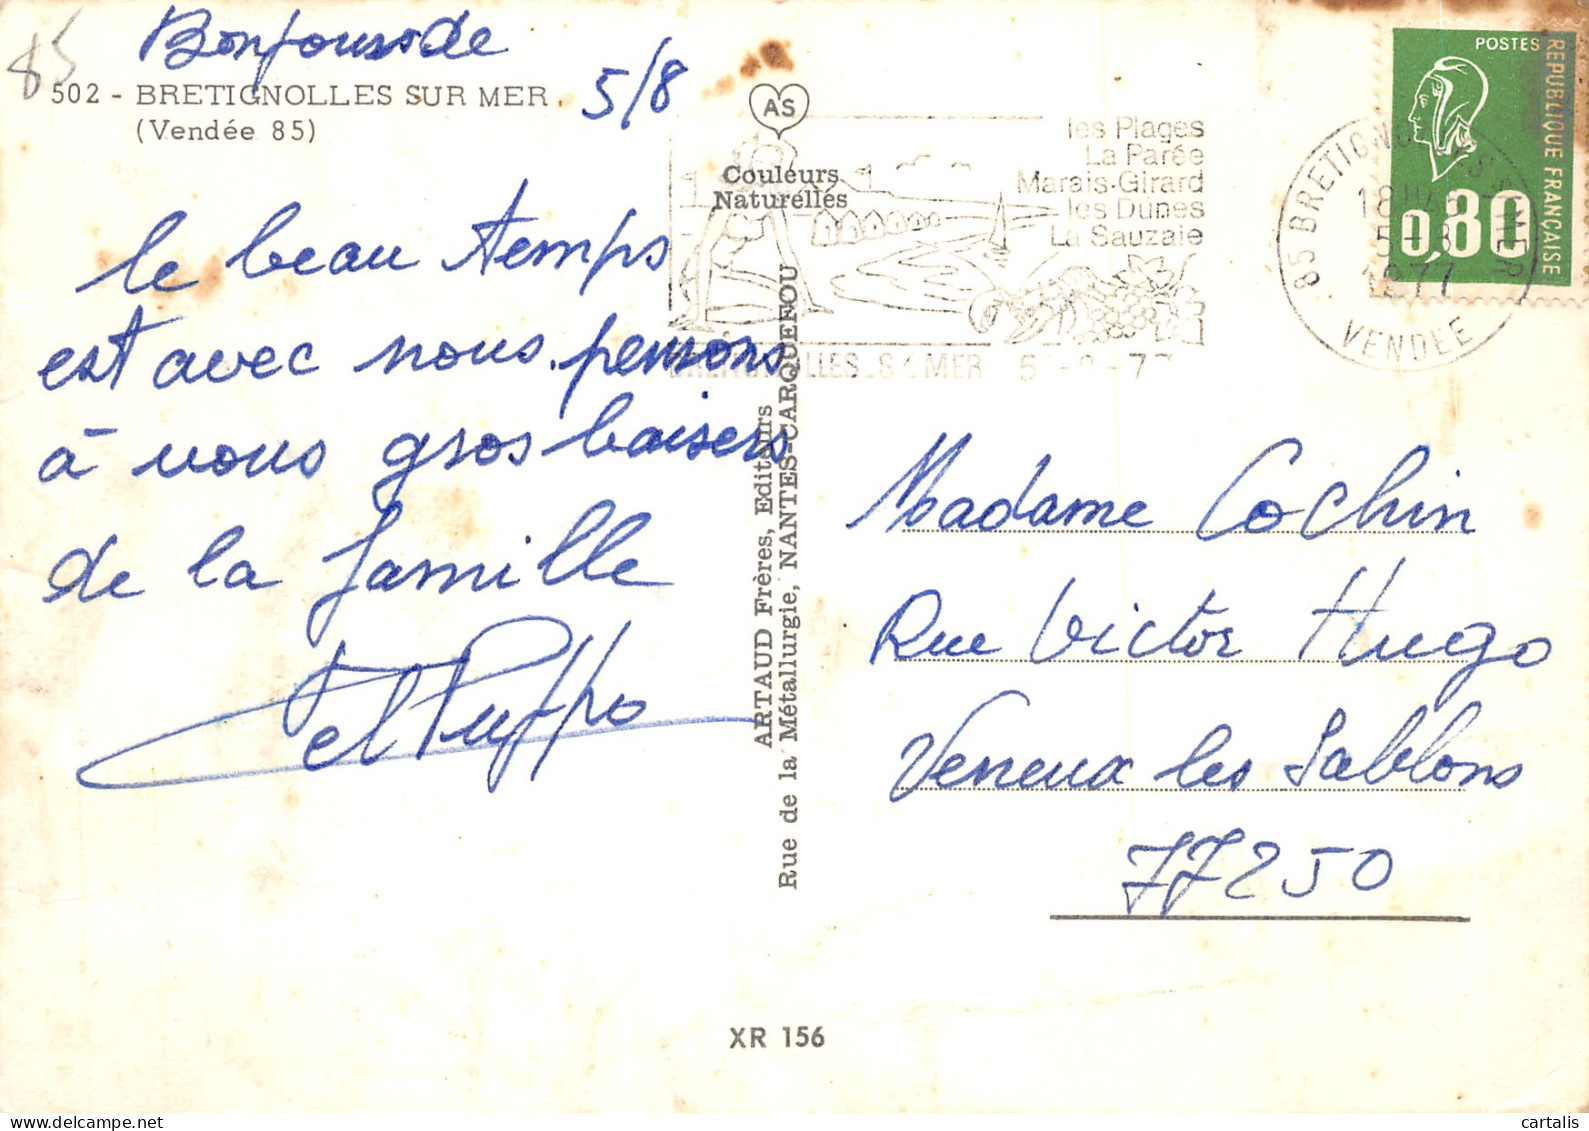 85
Bonjours de
502 - BRETIGNOLLES SUR MER
(Vendée 85)
5/8
le beau temps
est avec nous. pensons
à vous gros baisers
de la famille
AS
Couleurs
Naturelles
ARTAUD Frères, Editeurs
Rue de la Métallurgie, NANTES-CARQUEFOU
les Plages
La Parée
Marais-Girard
les Dunes
La Sauzaie
BRETIGNOLLES S/ MER 5 -8-77
85 BRETIGNOLLES S MER
18H
5-8
1977
VENDEE
POSTES
REPUBLIQUE FRANÇAISE
0,80
Madame Cochin
Rue Victor Hugo
Veneux les Sablons
77250
XR 156